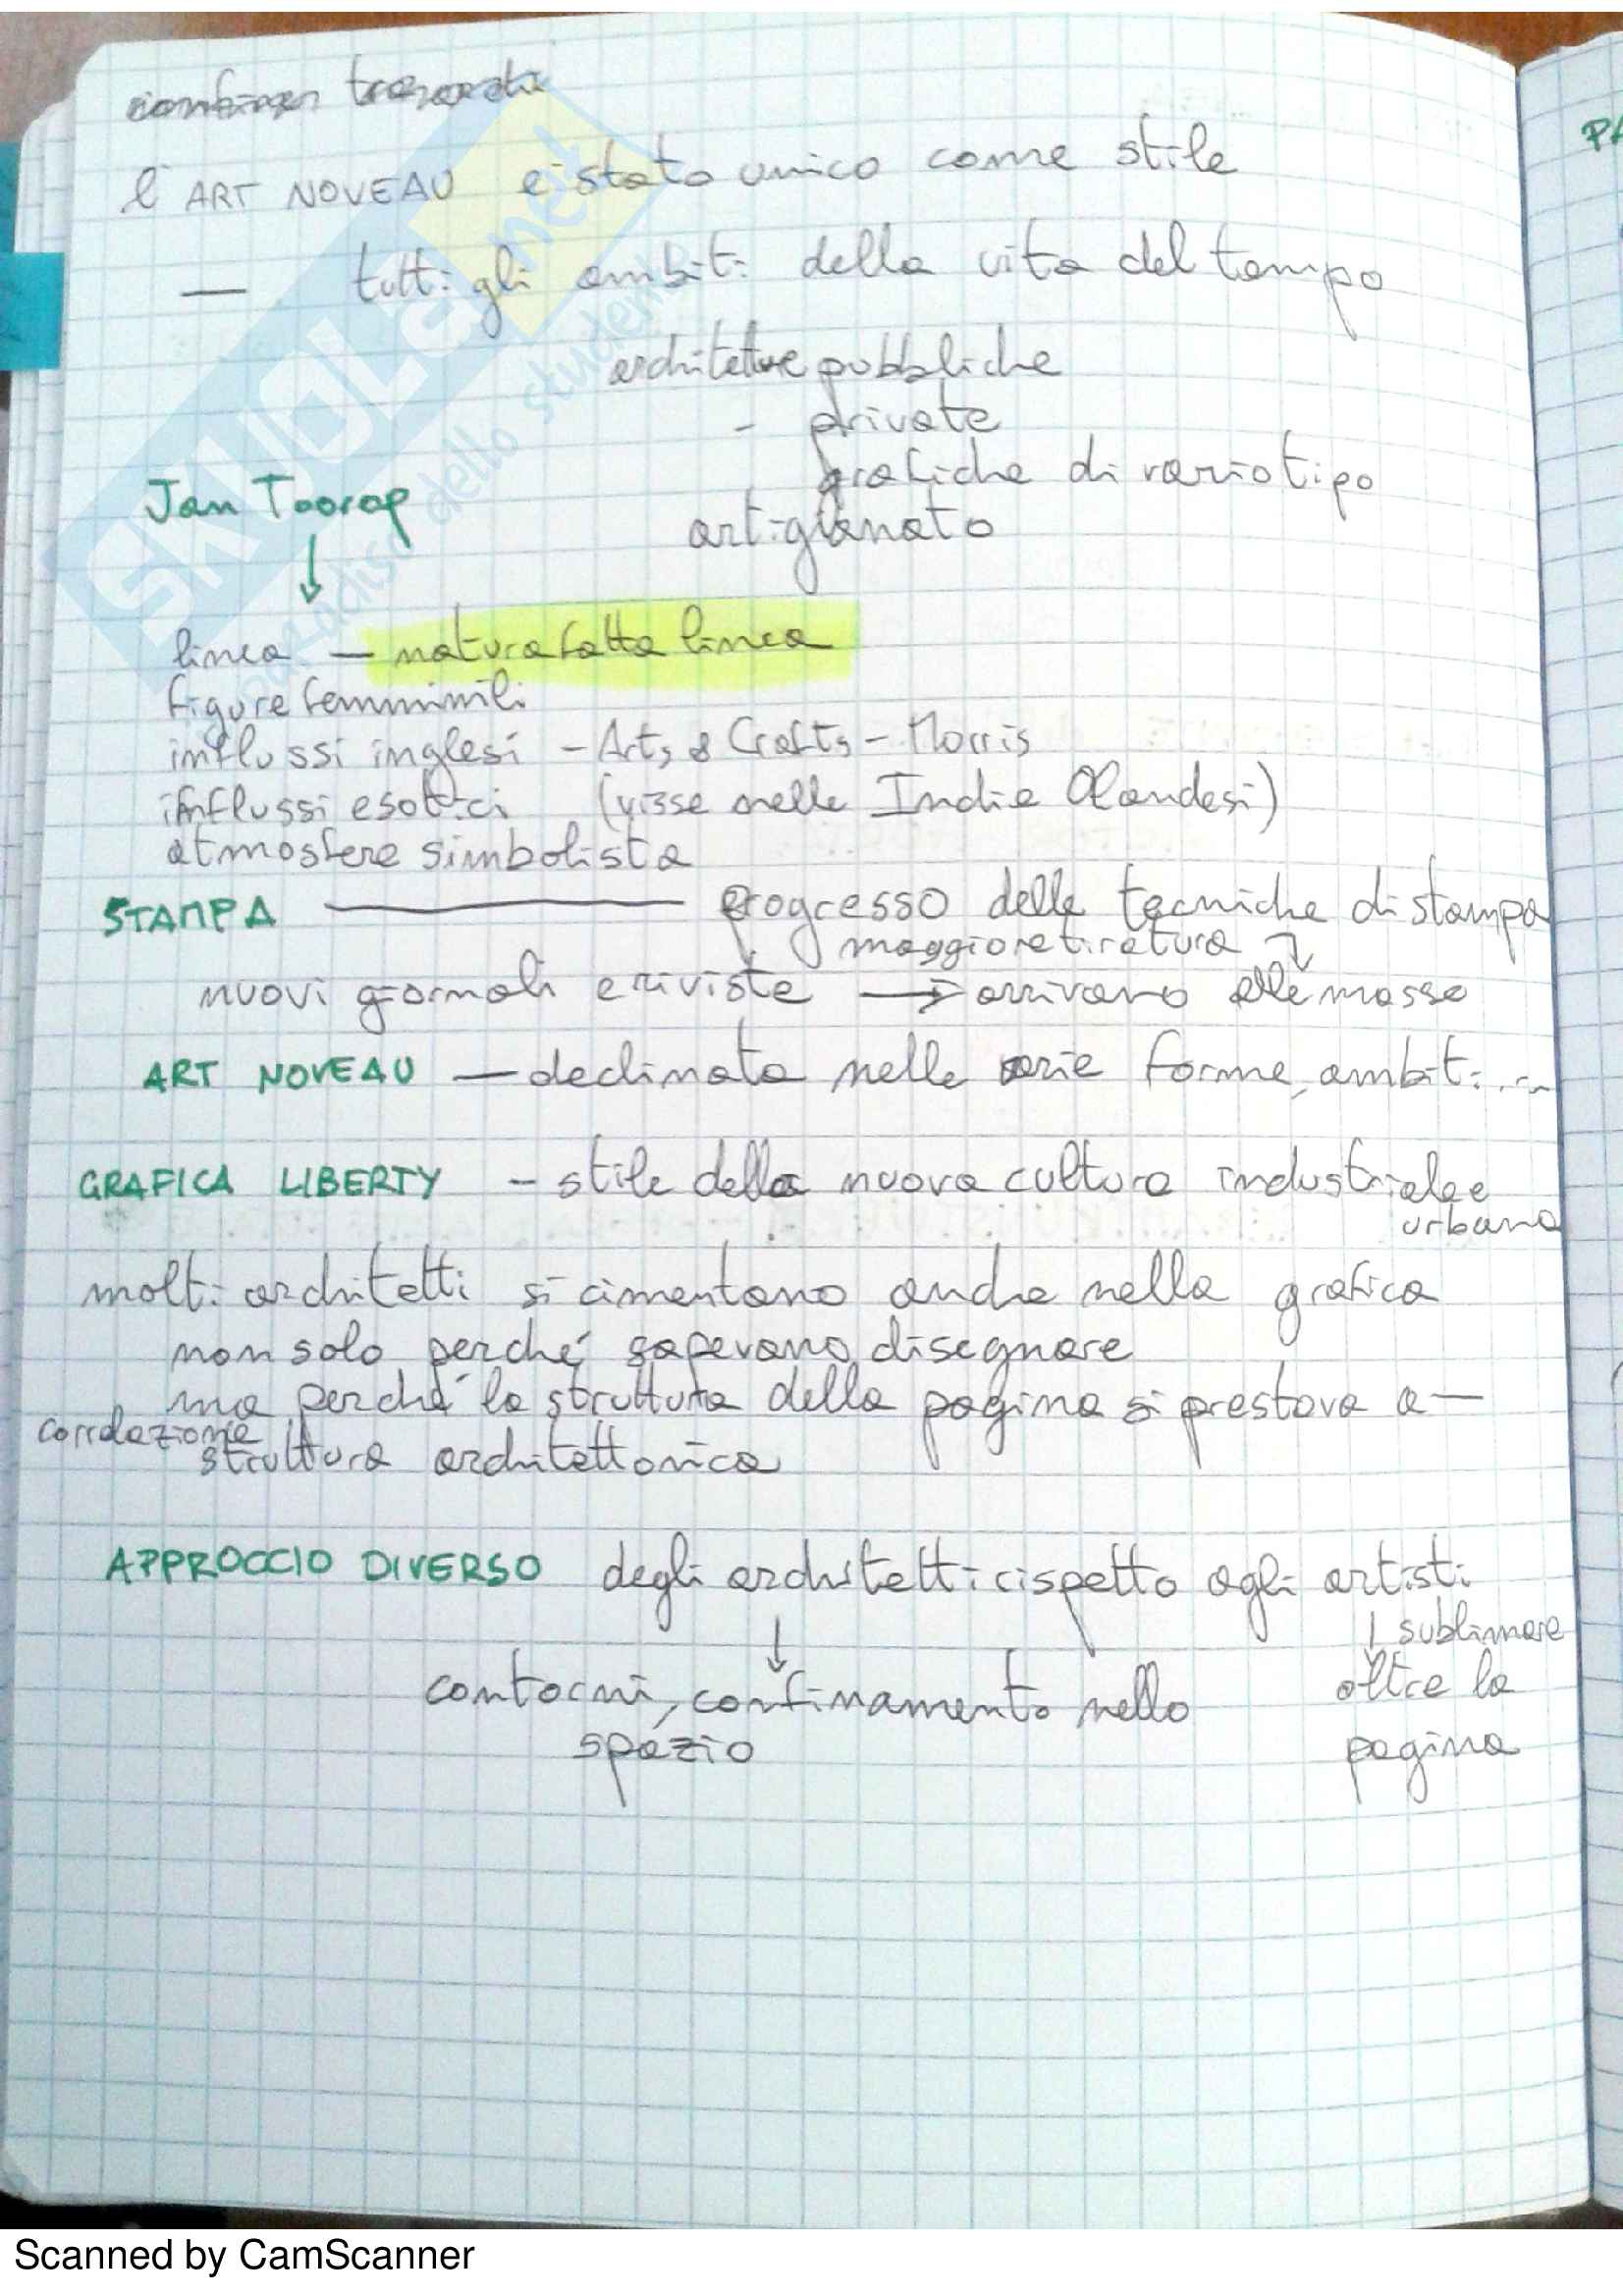 l'ART NOVEAU è stato unico come stile
— tutti gli ambiti della vita del tempo
architetture pubbliche
- private
grafiche di vario tipo
Jan Toorop
artigianato
linea — natura fatta linea
figure femminili
influssi inglesi - Arts & Crafts - Morris
influssi esotici (visse nelle Indie Olandesi)
atmosfere simbolista
STAMPA — progresso delle tecniche di stampa
maggiore tiratura
nuovi giornali e riviste → arrivano alle masse
ART NOVEAU — declinata nelle varie forme, ambiti...
GRAFICA LIBERTY - stile della nuova cultura industriale e
urbana
molti architetti si cimentano anche nella grafica
non solo perché sapevano disegnare
ma perché la struttura della pagina si prestava a —
correlazione
struttura architettonica
APPROCCIO DIVERSO degli architetti rispetto agli artisti
↓ sublimare
contorni, confinamento nello
oltre la
spazio
pagina
PA
SKUOLA.net
paradiso dello studente
Scanned by CamScanner